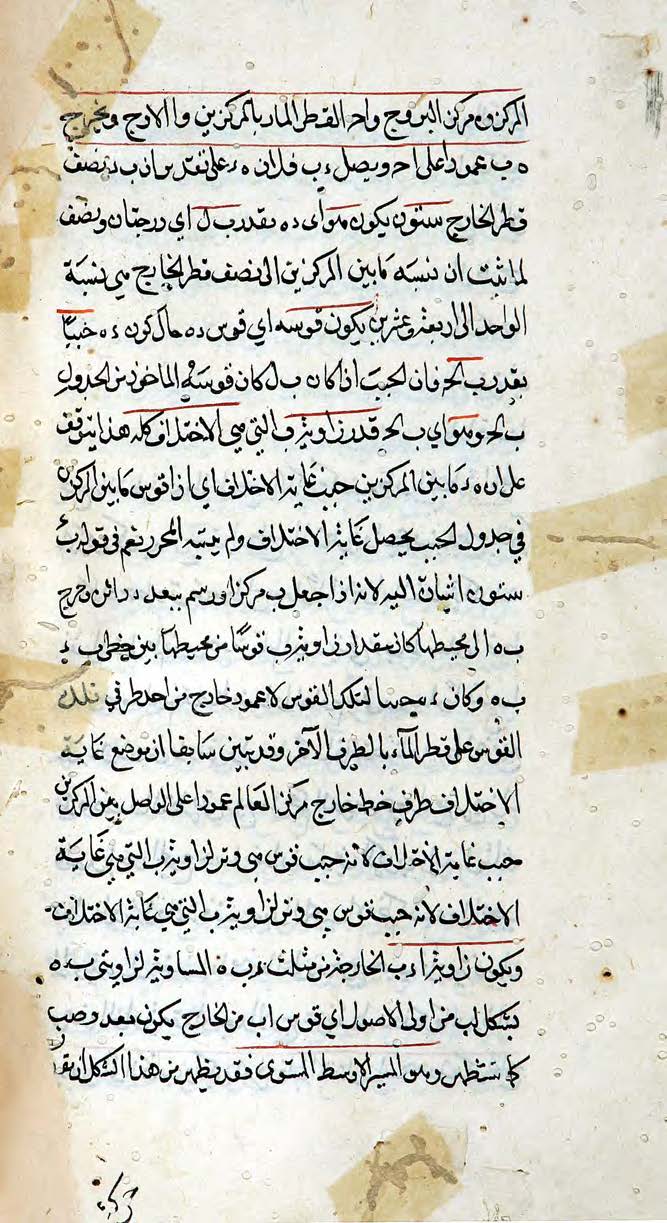 المركز وه مركز البروج واحه القطر المار بالمركزين والاوج ونخرج
ه ب عمودا على ا ح ويصل ء ب فلان ه ء على تقدير ان ب ء نصف
قطر الخارج ستون يكون هو اى ده بقدر ب ل اي درجتان ونصف
لما ثبت ان نسبة ما بين المركزين الى نصف قطر الخارج هي نسبة
الواحد الى اربعة وعشرين يكون قوسه اي قوس ده حال كون ء ه جيبا
بقدر ب الح فان الجيب اذا كان ب ل كان قوسه الماخوذ من الجدول
ب الح وهو اي ب الح قدر زاوية ب التي هي الاختلاف كله هذا يتوقف
على ان ه ء ما بين المركزين جيب غاية الاختلاف اي اذا قوس ما بين المركزين
في جدول الجيب يحصل غاية الاختلاف ولم يبينه المحرر نعم في قوله ب ء
ستون اشارة اليه لانه اذا جعل ب مركزا ورسم ببعد ب ء دائرة واخرج
ب ه الى محيطها كان مقدار زاوية ب قوسا من محيطها بين خطي ب ء
ب ه وكان ء ه جيبا لتلك القوس لانه عمود خارج من احد طرفي تلك
القوس على قطر المار بالطرف الآخر وقد تبين سابقا ان موضع غاية
الاختلاف طرف خط خارج مركز العالم عمودا على الواصل بين المركزين
جيب غاية الاختلاف لانه جيب قوس هي وتر لزاوية ب التي هي غاية
الاختلاف لانه جيب قوس هي وتر لزاوية ب التي هي غاية الاختلاف
ويكون زاوية ا ء ب الخارجة من مثلث ء ب ه المساوية لزاويتي ب ه
بشكل لب من اولى الاصول اي قوس اب من الخارج يكون بعد وصب
كا ستظهر وهو المسير الاوسط المستوى فقد يظهر من هذا الشكل ان بقد